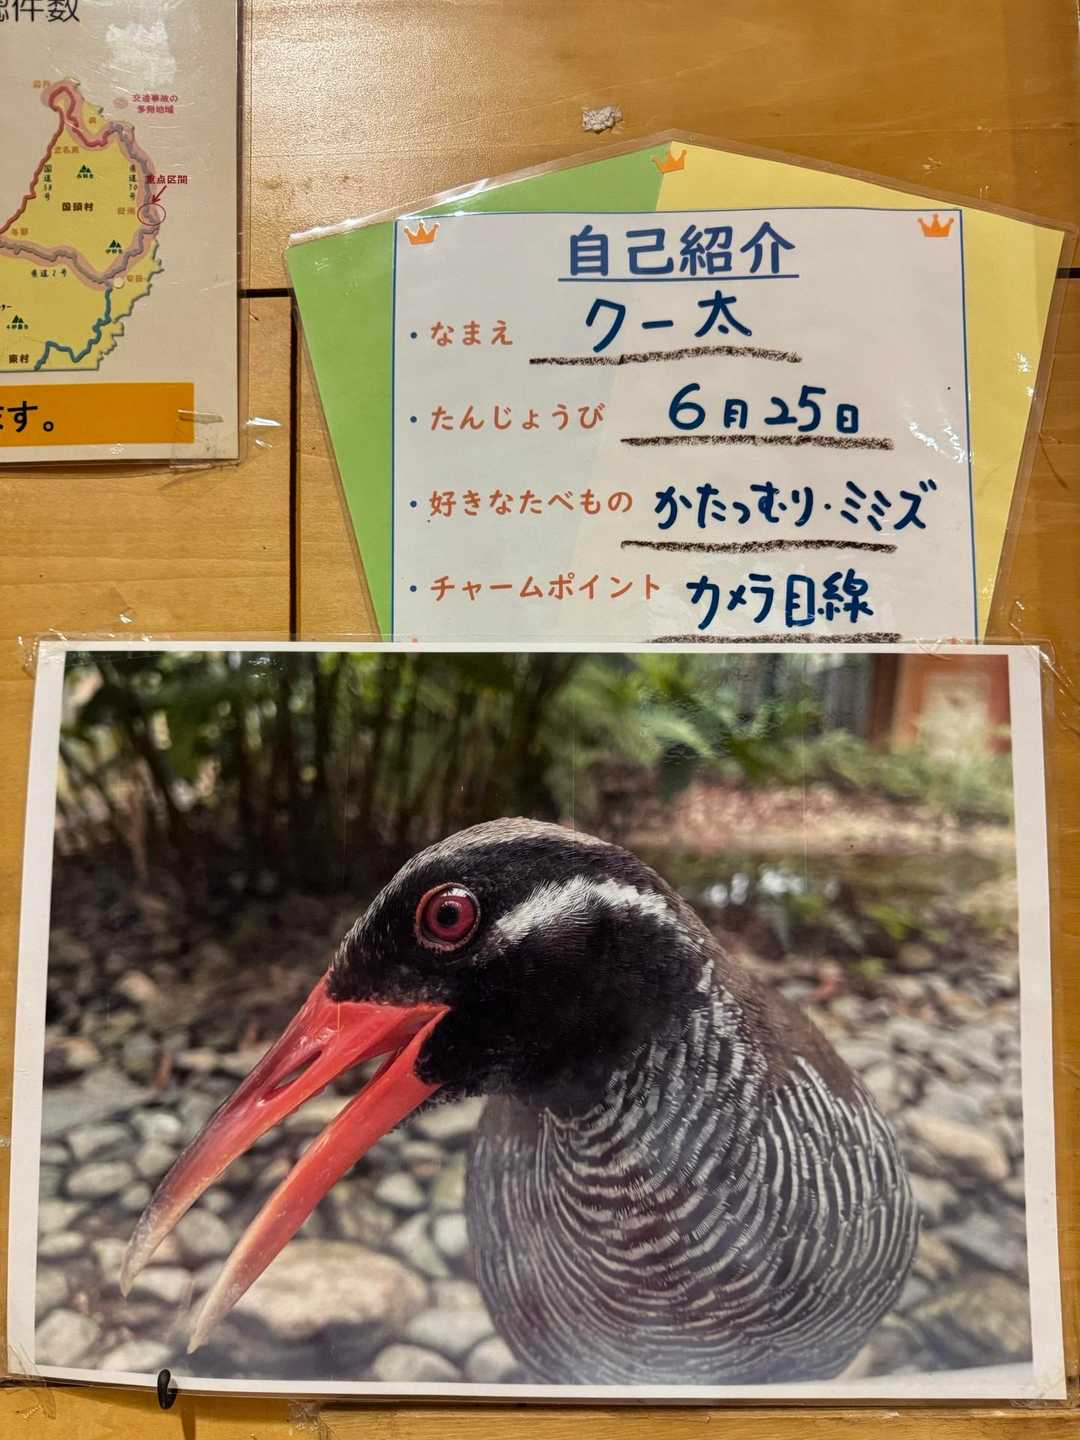 総件数
交通事故の
多発地域
重点区間
国道58号
県道70号
国頭村
県道2号
東村
ます。
自己紹介
・なまえ クー太
・たんじょうび 6月25日
・好きなたべもの かたつむり・ミミズ
・チャームポイント カメラ目線